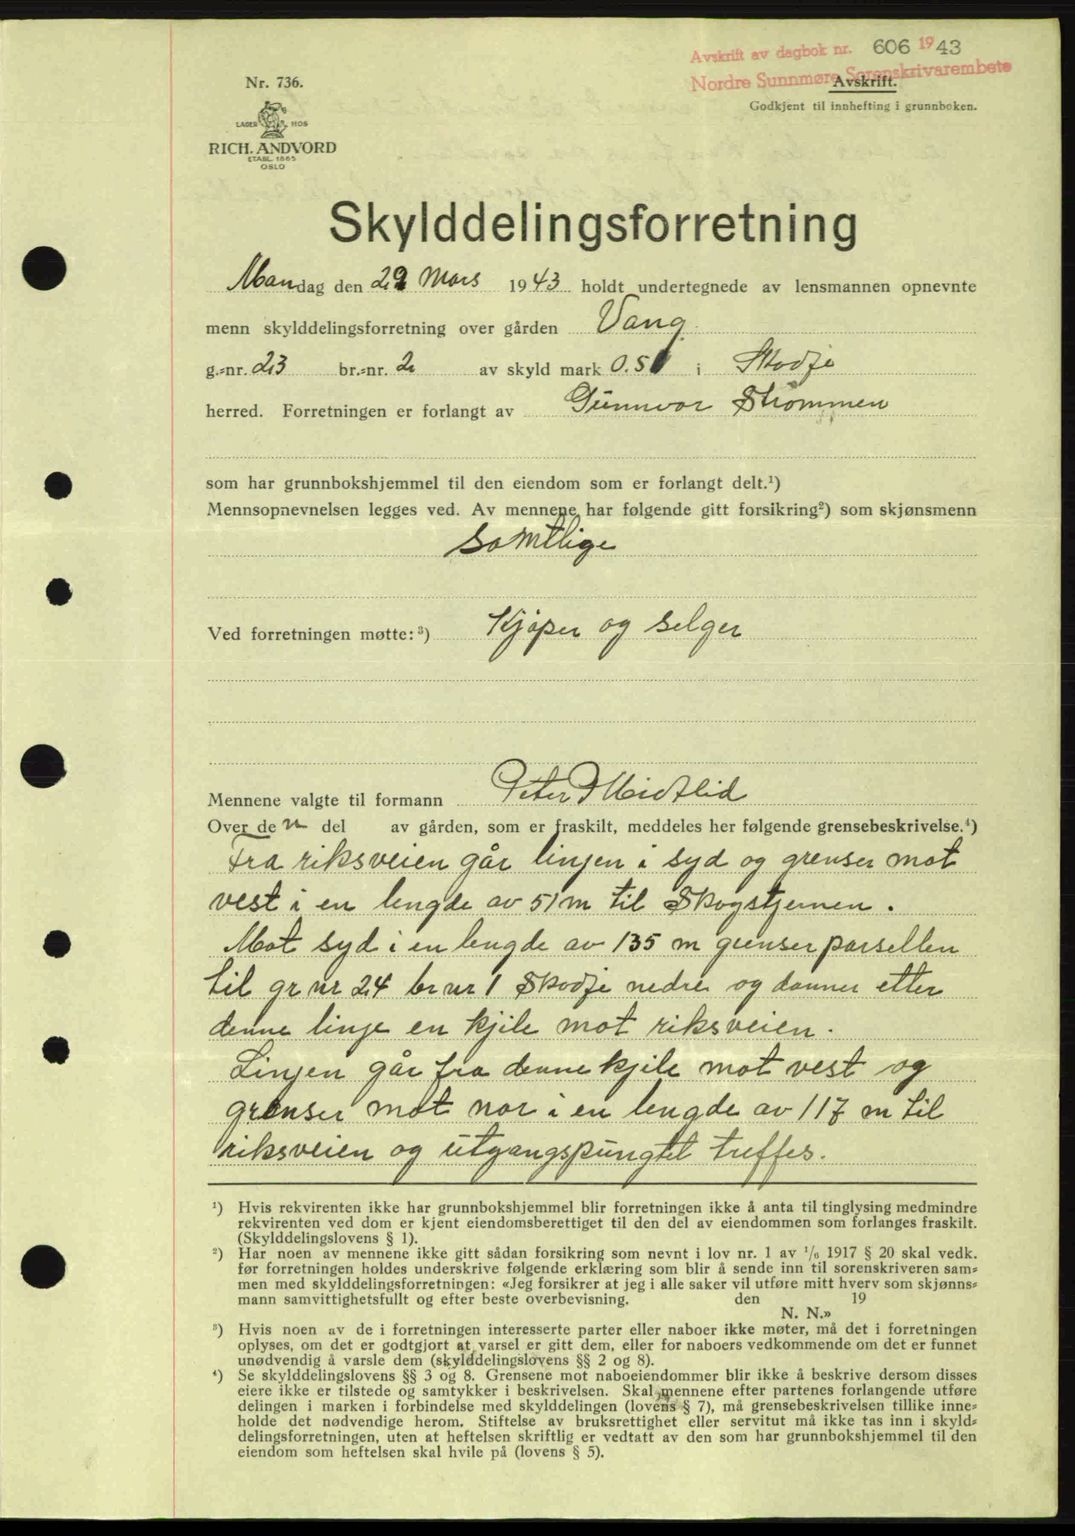 Avskrift av dagbok nr. 606 1943
Nordre Sunnmøre Sorenskrivarembete
Nr. 736.
Avskrift.
Godkjent til innhefting i grunnboken.
LAGER HOS
RICH. ANDVORD
ETABL. 1865
OSLO
Skylddelingsforretning
Mandag den 29 Mars 1943 holdt undertegnede av lensmannen opnevnte
menn skylddelingsforretning over gården Vang
g.=nr. 23 br.=nr. 2 av skyld mark 0.51 i Skodje
herred. Forretningen er forlangt av Gunnvor Strømmen
som har grunnbokshjemmel til den eiendom som er forlangt delt.¹)
Mennsopnevnelsen legges ved. Av mennene har følgende gitt forsikring²) som skjønsmenn
Samtlige
Ved forretningen møtte:³) Kjøper og selger
Mennene valgte til formann Peter P Midtlid
Over den del av gården, som er fraskilt, meddeles her følgende grensebeskrivelse.⁴)
Fra riksveien går linjen i syd og grenser mot
vest i en lengde av 51 m til Skogstjernen.
Mot syd i en lengde av 135 m grenser parsellen
til gr nr 24 br nr 1 Skodje nedre og danner etter
denne linje en kjile mot riksveien.
Linjen går fra denne kjile mot vest og
grenser mot nor i en lengde av 117 m til
riksveien og utgangspungtet treffes.
¹) Hvis rekvirenten ikke har grunnbokshjemmel blir forretningen ikke å anta til tinglysing medmindre
rekvirenten ved dom er kjent eiendomsberettiget til den del av eiendommen som forlanges fraskilt.
(Skylddelingslovens § 1).
²) Har noen av mennene ikke gitt sådan forsikring som nevnt i lov nr. 1 av 1/6 1917 § 20 skal vedk.
før forretningen holdes underskrive følgende erklæring som blir å sende inn til sorenskriveren sam=
men med skylddelingsforretningen: «Jeg forsikrer at jeg i alle saker vil utføre mitt hverv som skjønns=
mann samvittighetsfullt og efter beste overbevisning. den 19
N. N.»
³) Hvis noen av de i forretningen interesserte parter eller naboer ikke møter, må det i forretningen
oplyses, om det er godtgjort at varsel er gitt dem, eller for naboers vedkommende om det er funnet
unødvendig å varsle dem (skylddelingslovens §§ 2 og 8).
⁴) Se skylddelingslovens §§ 3 og 8. Grensene mot naboeiendommer blir ikke å beskrive dersom disses
eiere ikke er tilstede og samtykker i beskrivelsen. Skal mennene efter partenes forlangende utføre
delingen i marken i forbindelse med skylddelingen (lovens § 7), må grensebeskrivelsen tillike inne=
holde det nødvendige herom. Stiftelse av bruksrettighet eller servitut må ikke tas inn i skyld=
delingsforretningen, uten at heftelsen skriftlig er vedtatt av den som har grunnbokshjemmel til den
eiendom som heftelsen skal hvile på (lovens § 5).